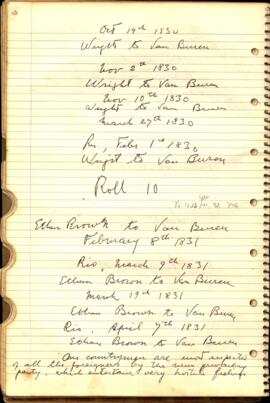 Oct 19th 1830
Wright to Van Buren
Nov 2th 1830
Wright to Van Buren
Nov 10th 1830
Wright to Van Buren
March 27th 1830
Rio, Febr 1st 1830
Wright to Van Buren
Roll 10
Ethan Brown to Van Buren
February 8th 1831
Rio, March 9th 1831
Ethan Brown to Van Buren
March 19th 1831
Ethan Brown to Van Buren
Rio, April 7th 1831
Ethan Brown to Van Buren
"Our countrymen are most
of all the foreigners by the new
party, which entertain very hostile feelings.